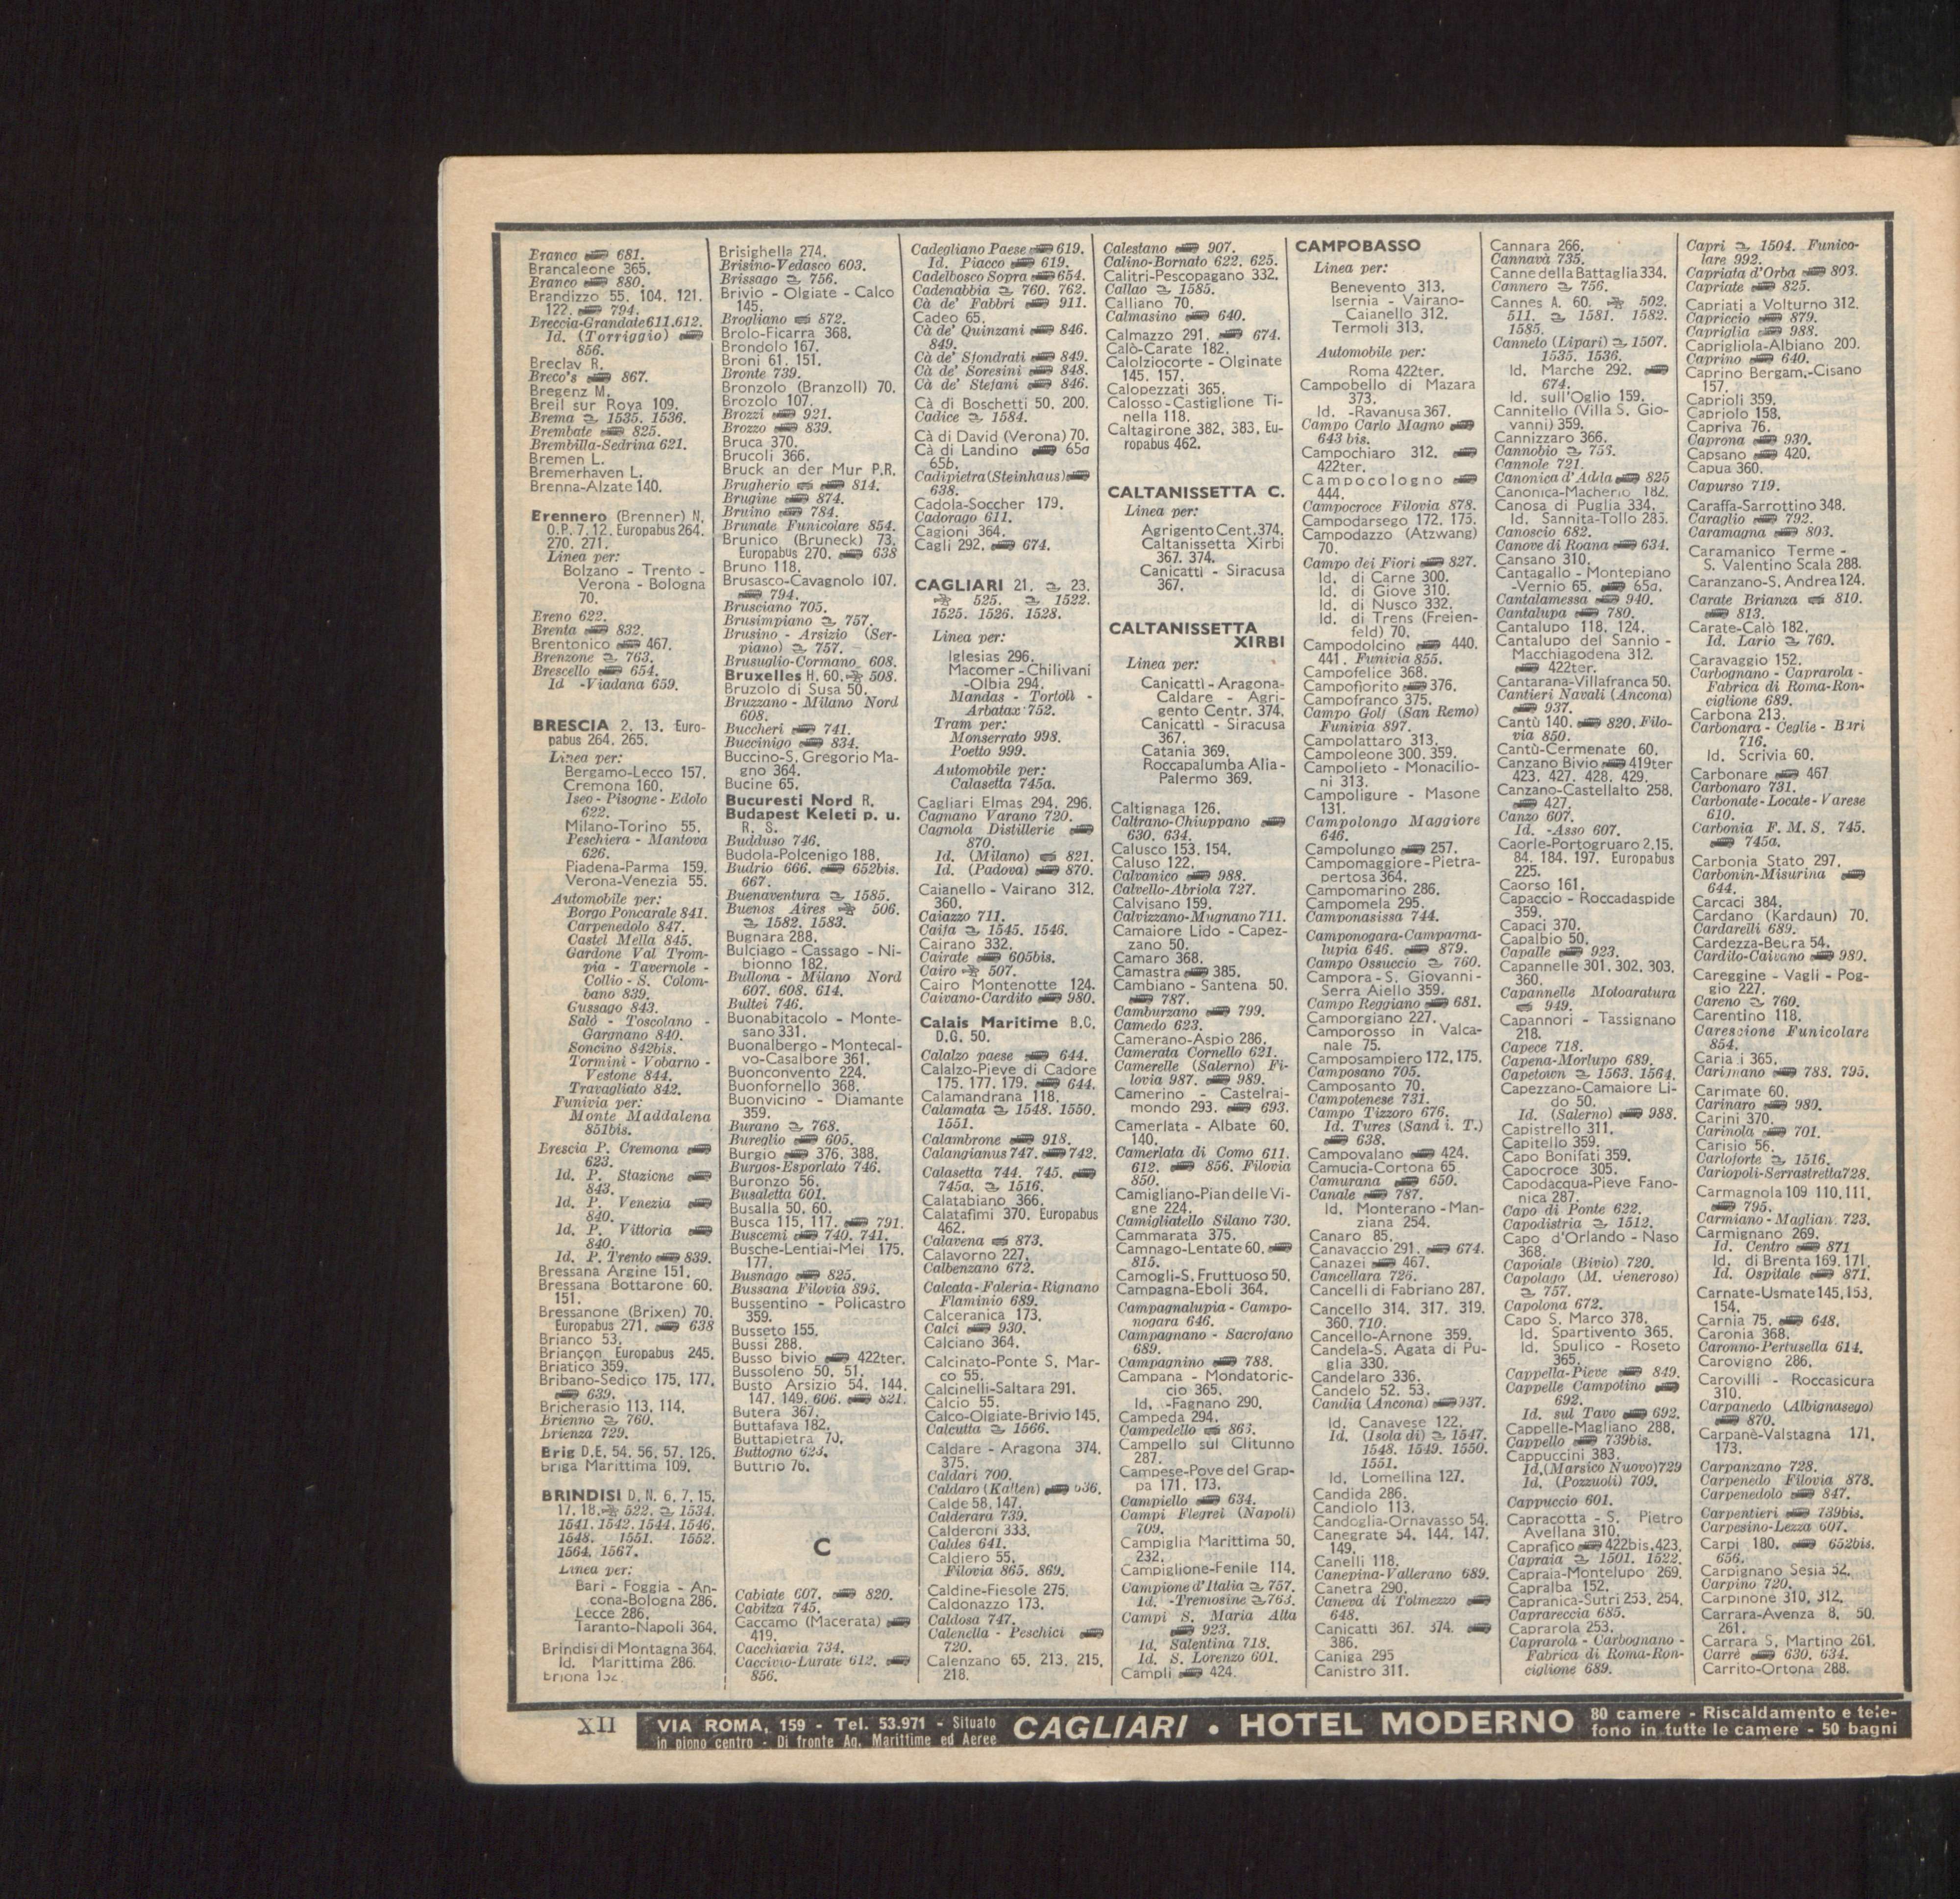 Branca 681.
Brancaleone 365.
Branco 880.
Brandizzo 55, 104, 121.
122. 794.
Breccia-Grandate 611.612.
Id. (Torriggio)
856.
Breclav R.
Breco's 867.
Bregenz M.
Breil sur Roya 109.
Brema 1535. 1536.
Brembate 825.
Brembilla-Sedrina 621.
Bremen L.
Bremerhaven L.
Brenna-Alzate 140.
Brennero (Brenner) N.
O.P. 7, 12. Europabus 264.
270. 271.
Linea per:
Bolzano - Trento -
Verona - Bologna
70.
Breno 622.
Brenta 832.
Brentonico 467.
Brenzone 763.
Brescello 654.
Id -Viadana 659.
BRESCIA 2, 13, Euro-
pabus 264, 265.
Linea per:
Bergamo-Lecco 157.
Cremona 160.
Iseo - Pisogne - Edolo
622.
Milano-Torino 55.
Peschiera - Mantova
626.
Piadena-Parma 159.
Verona-Venezia 55.
Automobile per:
Borgo Poncarale 841.
Carpenedolo 847.
Castel Mella 845.
Gardone Val Trom-
pia - Tavernole -
Collio - S. Colom-
bano 839.
Gussago 843.
Salò - Toscolano -
Gargnano 840.
Soncino 842bis.
Tormini - Vobarno -
Vestone 844.
Travagliato 842.
Funivia per:
Monte Maddalena
851bis.
Brescia P. Cremona
623.
Id. P. Stazione
843.
Id. P. Venezia
840.
Id. P. Vittoria
840.
Id. P. Trento 839.
Bressana Argine 151.
Bressana Bottarone 60.
151.
Bressanone (Brixen) 70.
Europabus 271. 638
Brianco 53.
Briançon Europabus 245.
Briatico 359.
Bribano-Sedico 175, 177.
639.
Bricherasio 113, 114.
Brienno 760.
Brienza 729.
Brig D.E. 54, 56, 57, 126.
Briga Marittima 109.
BRINDISI D. N. 6, 7, 15.
17, 18. 522. 1534.
1541. 1542. 1544. 1546.
1548. 1551. 1552.
1564. 1567.
Linea per:
Bari - Foggia - An-
cona-Bologna 286.
Lecce 286.
Taranto-Napoli 364.
Brindisi di Montagna 364.
Id. Marittima 286.
Briona 132
Brisighella 274.
Brisino-Vedasco 603.
Brissago 756.
Brivio - Olgiate - Calco
145.
Brogliano 872.
Brolo-Ficarra 368.
Brondolo 167.
Broni 61, 151.
Bronte 739.
Bronzolo (Branzoll) 70.
Brozolo 107.
Brozzi 921.
Brozzo 839.
Bruca 370.
Brucoli 366.
Bruck an der Mur P.R.
Brugherio 814.
Brugine 874.
Bruino 784.
Brunate Funicolare 854.
Brunico (Bruneck) 73.
Europabus 270. 638
Bruno 118.
Brusasco-Cavagnolo 107.
794.
Brusciano 705.
Brusimpiano 757.
Brusino - Arsizio (Ser-
piano) 757.
Brusuglio-Cormano 608.
Bruxelles H. 60. 508.
Bruzolo di Susa 50.
Bruzzano - Milano Nord
608.
Buccheri 741.
Buccinigo 834.
Buccino-S. Gregorio Ma-
gno 364.
Bucine 65.
Bucuresti Nord R.
Budapest Keleti p. u.
R. S.
Budduso 746.
Budola-Polcenigo 188.
Budrio 666. 652bis.
667.
Buenaventura 1585.
Buenos Aires 506.
1582. 1583.
Bugnara 288.
Bulciago - Cassago - Ni-
bionno 182.
Bullona - Milano Nord
607. 608. 614.
Bultei 746.
Buonabitacolo - Monte-
sano 331.
Buonalbergo - Montecal-
vo-Casalbore 361.
Buonconvento 224.
Buonfornello 368.
Buonvicino - Diamante
359.
Burano 768.
Bureglio 605.
Burgio 376, 388.
Burgos-Esporlato 746.
Buronzo 56.
Busaletta 601.
Busalla 50, 60.
Busca 115, 117. 791.
Buscemi 740. 741.
Busche-Lentiai-Mel 175.
177.
Busnago 825.
Bussana Filovia 896.
Bussentino - Policastro
359.
Busseto 155.
Bussi 288.
Busso bivio 422ter.
Bussoleno 50, 51.
Busto Arsizio 54, 144.
147, 149. 606. 821.
Butera 367.
Buttafava 182.
Buttapietra 70.
Buttogno 623.
Buttrio 76.
C
Cabiate 607. 820.
Cabitza 745.
Caccamo (Macerata)
419.
Cacchiavia 734.
Caccivio-Lurate 612.
856.
Cadegliano Paese 619.
Id. Piacco 619.
Cadelbosco Sopra 654.
Cadenabbia 760. 762.
Cà de' Fabbri 911.
Cadeo 65.
Cà de' Quinzani 846.
849.
Cà de' Sfondrati 849.
Cà de' Soresini 848.
Cà de' Stefani 846.
Cà di Boschetti 50, 200.
Cadice 1584.
Cà di David (Verona) 70.
Cà di Landino 65a
65b.
Cadipietra (Steinhaus)
638.
Cadola-Soccher 179.
Cadorago 611.
Cagioni 364.
Cagli 292. 674.
CAGLIARI 21. 23.
525. 1522.
1525. 1526. 1528.
Linea per:
Iglesias 296.
Macomer-Chilivani
-Olbia 294.
Mandas - Tortolì -
Arbatax 752.
Tram per:
Monserrato 998.
Poetto 999.
Automobile per:
Calasetta 745a.
Cagliari Elmas 294, 296.
Cagnano Varano 720.
Cagnola Distillerie
870.
Id. (Milano) 821.
Id. (Padova) 870.
Caianello - Vairano 312.
360.
Caiazzo 711.
Caifa 1545. 1546.
Cairano 332.
Cairate 605bis.
Cairo 507.
Cairo Montenotte 124.
Caivano-Cardito 980.
Calais Maritime B.C.
D.G. 50.
Calalzo paese 644.
Calalzo-Pieve di Cadore
175, 177, 179. 644.
Calamandrana 118.
Calamata 1548. 1550.
1551.
Calambrone 918.
Calangianus 747. 742.
Calasetta 744. 745.
745a. 1516.
Calatabiano 366.
Calatafimi 370. Europabus
462.
Calavena 873.
Calavorno 227.
Calbenzano 672.
Calcata - Faleria - Rignano
Flaminio 689.
Calceranica 173.
Calci 930.
Calciano 364.
Calcinato-Ponte S. Mar-
co 55.
Calcinelli-Saltara 291.
Calcio 55.
Calco-Olgiate-Brivio 145.
Calcutta 1566.
Caldare - Aragona 374.
375.
Caldari 700.
Caldaro (Kalten) 636.
Calde 58, 147.
Calderara 739.
Calderoni 333.
Caldes 641.
Caldiero 55.
Filovia 865. 869.
Caldine-Fiesole 275.
Caldonazzo 173.
Caldosa 747.
Calenella - Peschici
720.
Calenzano 65, 213, 215.
218.
Calestano 907.
Calino-Bornato 622. 625.
Calitri-Pescopagano 332.
Callao 1585.
Calliano 70.
Calmasino 640.
Calmazzo 291. 674.
Calò-Carate 182.
Calolziocorte - Olginate
145, 157.
Calopezzati 365.
Calosso - Castiglione Ti-
nella 118.
Caltagirone 382, 383, Eu-
ropabus 462.
CALTANISSETTA C.
Linea per:
Agrigento Cent. 374.
Caltanissetta Xirbi
367. 374.
Canicattì - Siracusa
367.
CALTANISSETTA
XIRBI
Linea per:
Canicattì - Aragona-
Caldare - Agri-
gento Centr. 374.
Canicattì - Siracusa
367.
Catania 369.
Roccapalumba Alia -
Palermo 369.
Caltignaga 126.
Caltrano-Chiuppano
630. 634.
Calusco 153, 154.
Caluso 122.
Calvanico 988.
Calvello-Abriola 727.
Calvisano 159.
Calvizzano-Mugnano 711.
Camaiore Lido - Capez-
zano 50.
Camaro 368.
Camastra 385.
Cambiano - Santena 50.
787.
Camburzano 799.
Camedo 623.
Camerano-Aspio 286.
Camerata Cornello 621.
Camerelle (Salerno) Fi-
lovia 987. 989.
Camerino - Castelrai-
mondo 293. 693.
Camerlata - Albate 60.
140.
Camerlata di Como 611.
612. 856. Filovia
850.
Camigliano-Pian delle Vi-
gne 224.
Camigliatello Silano 730.
Cammarata 375.
Camnago-Lentate 60.
815.
Camogli-S. Fruttuoso 50.
Campagna-Eboli 364.
Campagnalupia - Campo-
nogara 646.
Campagnano - Sacrofano
689.
Campagnino 788.
Campana - Mondatoric-
cio 365.
Id. -Fagnano 290.
Campeda 294.
Campedello 865.
Campello sul Clitunno
287.
Campese-Pove del Grap-
pa 171, 173.
Campiello 634.
Campi Flegrei (Napoli)
709.
Campiglia Marittima 50.
232.
Campiglione-Fenile 114.
Campione d'Italia 757.
Id. -Tremosine 763.
Campi S. Maria Alta
923.
Id. Salentina 718.
Id. S. Lorenzo 601.
Campli 424.
CAMPOBASSO
Linea per:
Benevento 313.
Isernia - Vairano-
Caianello 312.
Termoli 313.
Automobile per:
Roma 422ter.
Campobello di Mazara
373.
Id. -Ravanusa 367.
Campo Carlo Magno
643 bis.
Campochiaro 312.
422ter.
Campocologno
444.
Campocroce Filovia 878.
Campodarsego 172, 175.
Campodazzo (Atzwang)
70.
Campo dei Fiori 827.
Id. di Carne 300.
Id. di Giove 310.
Id. di Nusco 332.
Id. di Trens (Freien-
feld) 70.
Campodolcino 440.
441. Funivia 855.
Campofelice 368.
Campofiorito 376.
Campofranco 375.
Campo Golf (San Remo)
Funivia 897.
Campolattaro 313.
Campoleone 300, 359.
Campolieto - Monacilio-
ni 313.
Campoligure - Masone
131.
Campolongo Maggiore
646.
Campolungo 257.
Campomaggiore - Pietra-
pertosa 364.
Campomarino 286.
Campomela 295.
Camponasissa 744.
Camponogara-Campagna-
lupia 646. 879.
Campo Ossuccio 760.
Campora - S. Giovanni -
Serra Aiello 359.
Campo Reggiano 681.
Camporgiano 227.
Camporosso in Valca-
nale 75.
Camposampiero 172, 175.
Camposano 705.
Camposanto 70.
Campotenese 731.
Campo Tizzoro 676.
Id. Tures (Sand i. T.)
638.
Campovalano 424.
Camucia-Cortona 65
Camurana 650.
Canale 787.
Id. Monterano - Man-
ziana 254.
Canaro 85.
Canavaccio 291. 674.
Canazei 467.
Cancellara 726.
Cancelli di Fabriano 287.
Cancello 314, 317, 319.
360. 710.
Cancello-Arnone 359.
Candela-S. Agata di Pu-
glia 330.
Candelaro 336.
Candelo 52, 53.
Candia (Ancona) 937.
Id. Canavese 122.
Id. (Isola di) 1547.
1548. 1549. 1550.
1551.
Id. Lomellina 127.
Candida 286.
Candiolo 113.
Candoglia-Ornavasso 54.
Canegrate 54, 144, 147.
149.
Canelli 118.
Canepina-Vallerano 689.
Canetra 290.
Caneva di Tolmezzo
648.
Canicattì 367. 374.
386.
Caniga 295
Canistro 311.
Cannara 266.
Cannavà 735.
Canne della Battaglia 334.
Cannero 756.
Cannes A. 60. 502.
511. 1581. 1582.
1585.
Canneto (Lipari) 1507.
1535. 1536.
Id. Marche 292.
674.
Id. sull'Oglio 159.
Cannitello (Villa S. Gio-
vanni) 359.
Cannizzaro 366.
Cannobio 756.
Cannole 721.
Canonica d'Adda 825
Canonica-Macherio 182.
Canosa di Puglia 334.
Id. Sannita-Tollo 285.
Canoscio 682.
Canove di Roana 634.
Cansano 310.
Cantagallo - Montepiano
-Vernio 65. 65a.
Cantalamessa 940.
Cantalupa 780.
Cantalupo 118, 124.
Cantalupo del Sannio -
Macchiagodena 312.
422ter.
Cantarana-Villafranca 50.
Cantieri Navali (Ancona)
937.
Cantù 140. 820. Filo-
via 850.
Cantù-Cermenate 60.
Canzano Bivio 419ter
423. 427. 428. 429.
Canzano-Castellalto 258.
427.
Canzo 607.
Id. -Asso 607.
Caorle-Portogruaro 2, 15.
84, 184, 197. Europabus
225.
Caorso 161.
Capaccio - Roccadaspide
359.
Capaci 370.
Capalbio 50.
Capalle 923.
Capannelle 301, 302, 303.
360.
Capannelle Motoaratura
949.
Capannori - Tassignano
218.
Capece 718.
Capena-Morlupo 689.
Capetown 1563. 1564.
Capezzano-Camaiore Li-
do 50.
Id. (Salerno) 988.
Capistrello 311.
Capitello 359.
Capo Bonifati 359.
Capocroce 305.
Capodacqua-Pieve Fano-
nica 287.
Capo di Ponte 622.
Capodistria 1512.
Capo d'Orlando - Naso
368.
Capoiale (Bivio) 720.
Capolago (M. Generoso)
757.
Capolona 672.
Capo S. Marco 378.
Id. Spartivento 365.
Id. Spulico - Roseto
365.
Cappella-Pieve 849.
Cappelle Campolino
692.
Id. sul Tavo 692.
Cappelle-Magliano 288.
Cappello 739bis.
Cappuccini 383.
Id. (Marsico Nuovo) 729
Id. (Pozzuoli) 709.
Cappuccio 601.
Capracotta - S. Pietro
Avellana 310.
Caprafico 422bis. 423.
Capraia 1501. 1522.
Capraia-Montelupo 269.
Capralba 152.
Capranica-Sutri 253, 254.
Caprareccia 685.
Caprarola 253.
Caprarola - Carbognano -
Fabrica di Roma-Ron-
ciglione 689.
Capri 1504. Funico-
lare 992.
Capriata d'Orba 803.
Capriate 825.
Capriati a Volturno 312.
Capriccio 879.
Capriglia 988.
Caprigliola-Albiano 200.
Caprino 640.
Caprino Bergam.-Cisano
157.
Caprioli 359.
Capriolo 158.
Capriva 76.
Caprona 930.
Capsano 420.
Capua 360.
Capurso 719.
Caraffa-Sarrottino 348.
Caraglio 792.
Caramagna 803.
Caramanico Terme -
S. Valentino Scala 288.
Caranzano-S. Andrea 124.
Carate Brianza 810.
813.
Carate-Calò 182.
Id. Lario 760.
Caravaggio 152.
Carbognano - Caprarola -
Fabrica di Roma-Ron-
ciglione 689.
Carbona 213.
Carbonara - Ceglie - Bari
716.
Id. Scrivia 60.
Carbonare 467
Carbonaro 731.
Carbonate-Locate-Varese
610.
Carbonia F. M. S. 745.
745a.
Carbonia Stato 297.
Carbonin-Misurina
644.
Carcaci 384.
Cardano (Kardaun) 70.
Cardarelli 689.
Cardezza-Beura 54.
Cardito-Caivano 980.
Careggine - Vagli - Pog-
gio 227.
Careno 760.
Carentino 118.
Carescione Funicolare
854.
Caria i 365.
Carignano 788. 795.
Carimate 60.
Carinaro 980.
Carini 370.
Carinola 701.
Carisio 56.
Carloforte 1516.
Cariopoli-Serrastretta 728.
Carmagnola 109 110, 111.
795.
Carmiano - Maglian. 723.
Carmignano 269.
Id. Centro 871
Id. di Brenta 169, 171.
Id. Ospitale 871.
Carnate-Usmate 145, 153.
154.
Carnia 75. 648.
Caronia 368.
Caronno-Pertusella 614.
Carovigno 286.
Carovilli - Roccasicura
310.
Carpanedo (Albignasego)
870.
Carpanè-Valstagna 171.
173.
Carpanzano 728.
Carpenedo Filovia 878.
Carpenedolo 847.
Carpentieri 739bis.
Carpesino-Lezza 607.
Carpi 180. 652bis.
656.
Carpignano Sesia 52.
Carpino 720.
Carpinone 310, 312.
Carrara-Avenza 8, 50.
261.
Carrara S. Martino 261.
Carrè 630. 634.
Carrito-Ortona 288.
XII
VIA ROMA, 159 - Tel. 53.971 - Situato
in piono centro - Di fronte Ag. Marittime ed Aeree
CAGLIARI • HOTEL MODERNO
80 camere - Riscaldamento e tele-
fono in tutte le camere - 50 bagni